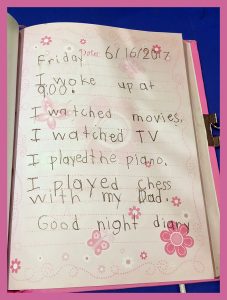 Friday Date: 6/16/2017
I woke up at
9:00.
I watched movies.
I watched TV
I played the piano.
I played chess
with my Dad.
Good night diary